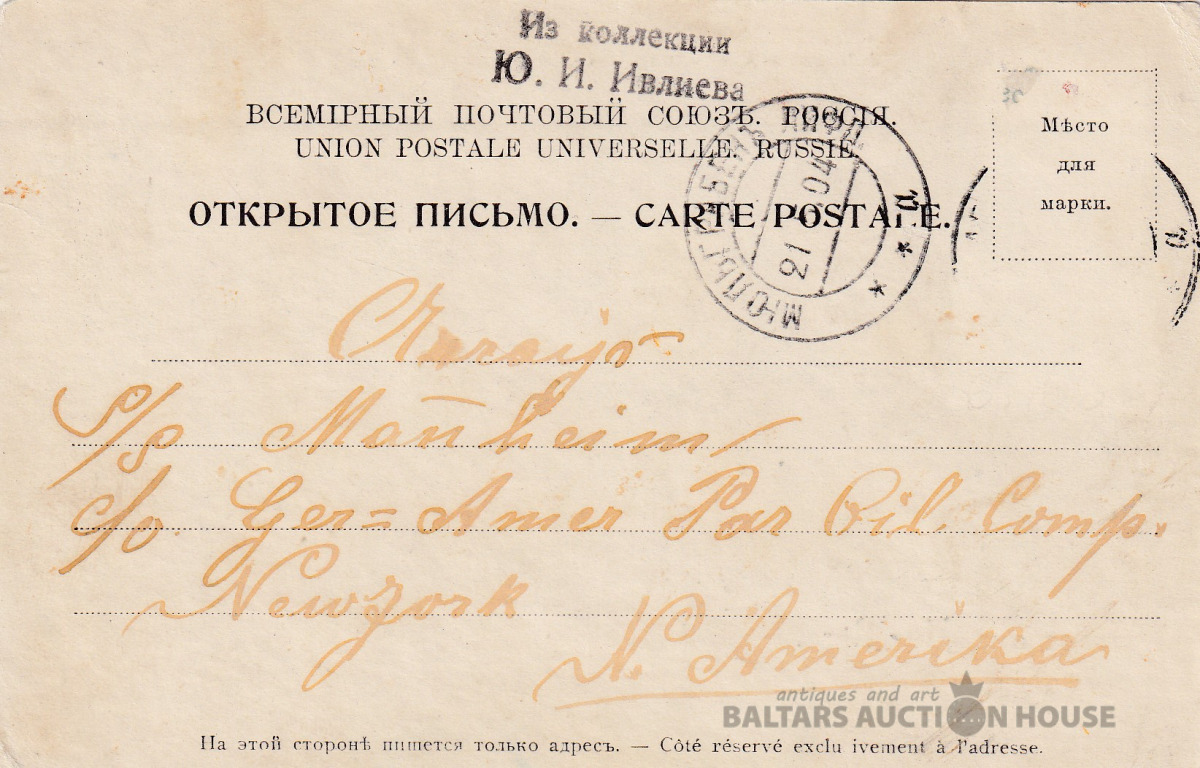 Из коллекции
Ю. И. Ивлиева
ВСЕМІРНЫЙ ПОЧТОВЫЙ СОЮЗЪ. РОССІЯ.
UNION POSTALE UNIVERSELLE. RUSSIE.
ОТКРЫТОЕ ПИСЬМО. — CARTE POSTALE.
Мѣсто
для
марки.
21 04
S/S Mañheim
c/o. Ger= Amer Oil Comp.
Newyork
N. Amerika
antiques and art
BALTARS AUCTION HOUSE
На этой сторонѣ пишется только адресъ. — Côté réservé exclu ivement à l'adresse.